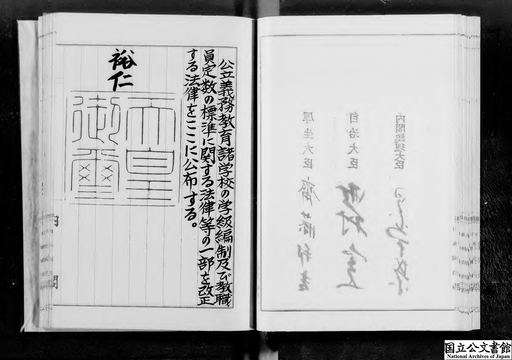 公立義務教育諸学校の学級編制及び教職
員定数の標準に関する法律等の一部を改正
する法律をここに公布する。
裕仁
天皇
御璽
内閣
内閣総理大臣
自治大臣
厚生大臣
国立公文書館
National Archives of Japan